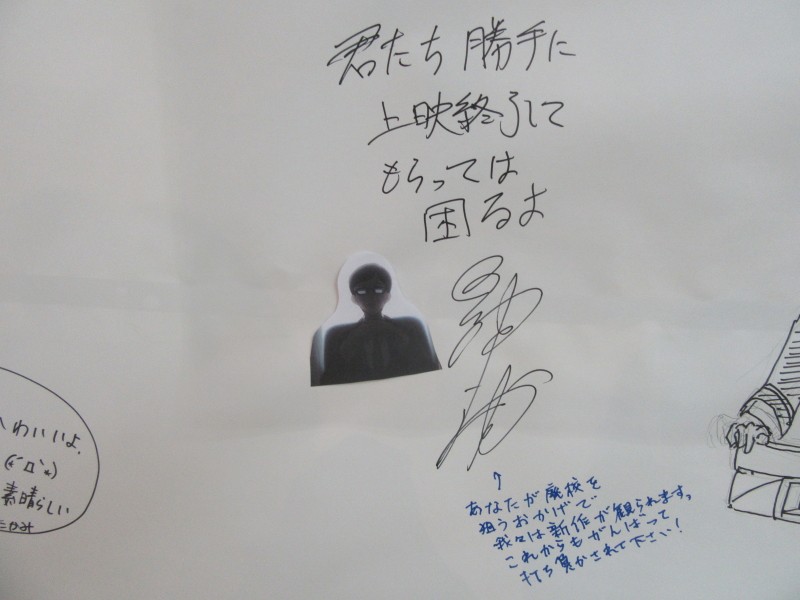 君たち 勝手に
上映終了して
もらっては
困るよ
↑
あなたが廃校を
狙うおかげで
我々は新作が観られますっ
これからもがんばって
打ち負かされて下さい!
いいよ。
素晴らしい